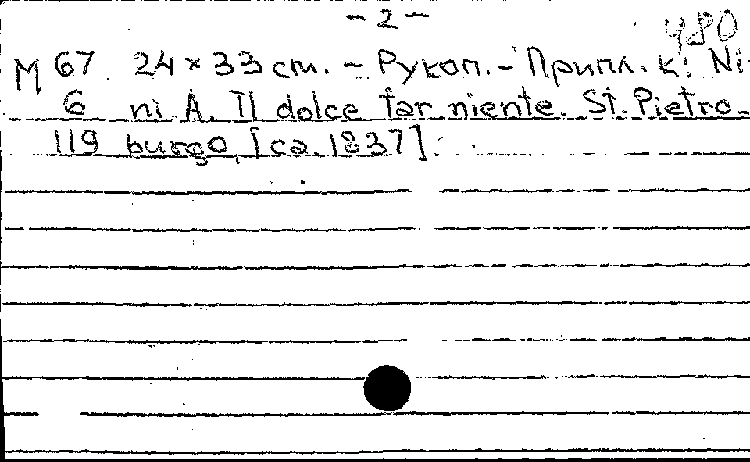 - 2 -
480
М 67 24 × 33 см. - Рукоп. - Припл. к: Ni-
6 ni A. Il dolce far niente. St. Pietro-
119 burgo, [ca. 1837].